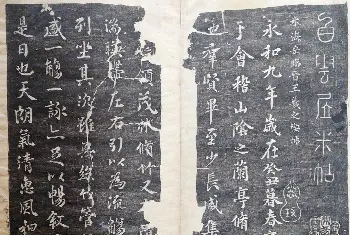 白雲居米帖
永和九年歲在癸丑暮春
于會稽山陰之蘭亭脩
也羣賢畢至少長咸集
領茂林脩竹又
湍暎帶左右引以為流觴
列坐其次雖無絲竹管
盛一觴一詠亦足以暢敘
是日也天朗氣清惠風和